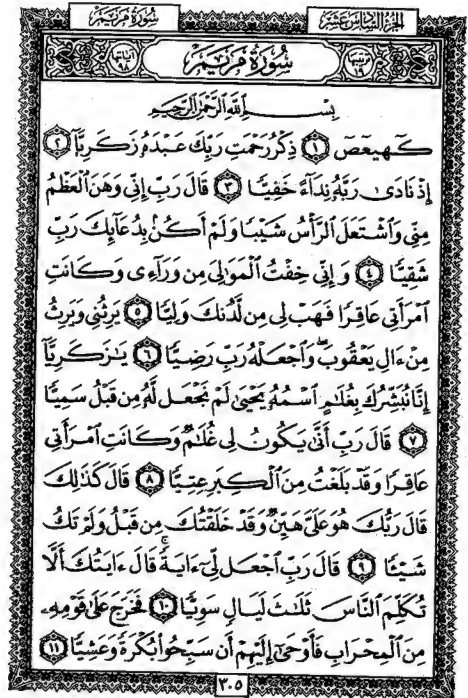 الجزء السادس عشر
سورة مريم
ترتيبها ١٩
سورة مريم
آياتها ٩٨
بِسْمِ اللَّهِ الرَّحْمَٰنِ الرَّحِيمِ
كٓهيعٓصٓ ١ ذِكْرُ رَحْمَتِ رَبِّكَ عَبْدَهُۥ زَكَرِيَّآ ٢
إِذْ نَادَىٰ رَبَّهُۥ نِدَآءً خَفِيًّا ٣ قَالَ رَبِّ إِنِّى وَهَنَ ٱلْعَظْمُ
مِنِّى وَٱشْتَعَلَ ٱلرَّأْسُ شَيْبًا وَلَمْ أَكُنۢ بِدُعَآئِكَ رَبِّ
شَقِيًّا ٤ وَإِنِّى خِفْتُ ٱلْمَوَٰلِىَ مِن وَرَآءِى وَكَانَتِ
ٱمْرَأَتِى عَاقِرًا فَهَبْ لِى مِن لَّدُنكَ وَلِيًّا ٥ يَرِثُنِى وَيَرِثُ
مِنْ ءَالِ يَعْقُوبَ ۖ وَٱجْعَلْهُ رَبِّ رَضِيًّا ٦ يَٰزَكَرِيَّآ
إِنَّا نُبَشِّرُكَ بِغُلَٰمٍ ٱسْمُهُۥ يَحْيَىٰ لَمْ نَجْعَل لَّهُۥ مِن قَبْلُ سَمِيًّا
٧ قَالَ رَبِّ أَنَّىٰ يَكُونُ لِى غُلَٰمٌ وَكَانَتِ ٱمْرَأَتِى
عَاقِرًا وَقَدْ بَلَغْتُ مِنَ ٱلْكِبَرِ عِتِيًّا ٨ قَالَ كَذَٰلِكَ
قَالَ رَبُّكَ هُوَ عَلَىَّ هَيِّنٌ وَقَدْ خَلَقْتُكَ مِن قَبْلُ وَلَمْ تَكُ
شَيْـًٔا ٩ قَالَ رَبِّ ٱجْعَل لِّىٓ ءَايَةً ۚ قَالَ ءَايَتُكَ أَلَّا
تُكَلِّمَ ٱلنَّاسَ ثَلَٰثَ لَيَالٍ سَوِيًّا ١٠ فَخَرَجَ عَلَىٰ قَوْمِهِۦ
مِنَ ٱلْمِحْرَابِ فَأَوْحَىٰٓ إِلَيْهِمْ أَن سَبِّحُوا۟ بُكْرَةً وَعَشِيًّا ١١
٣٠٥